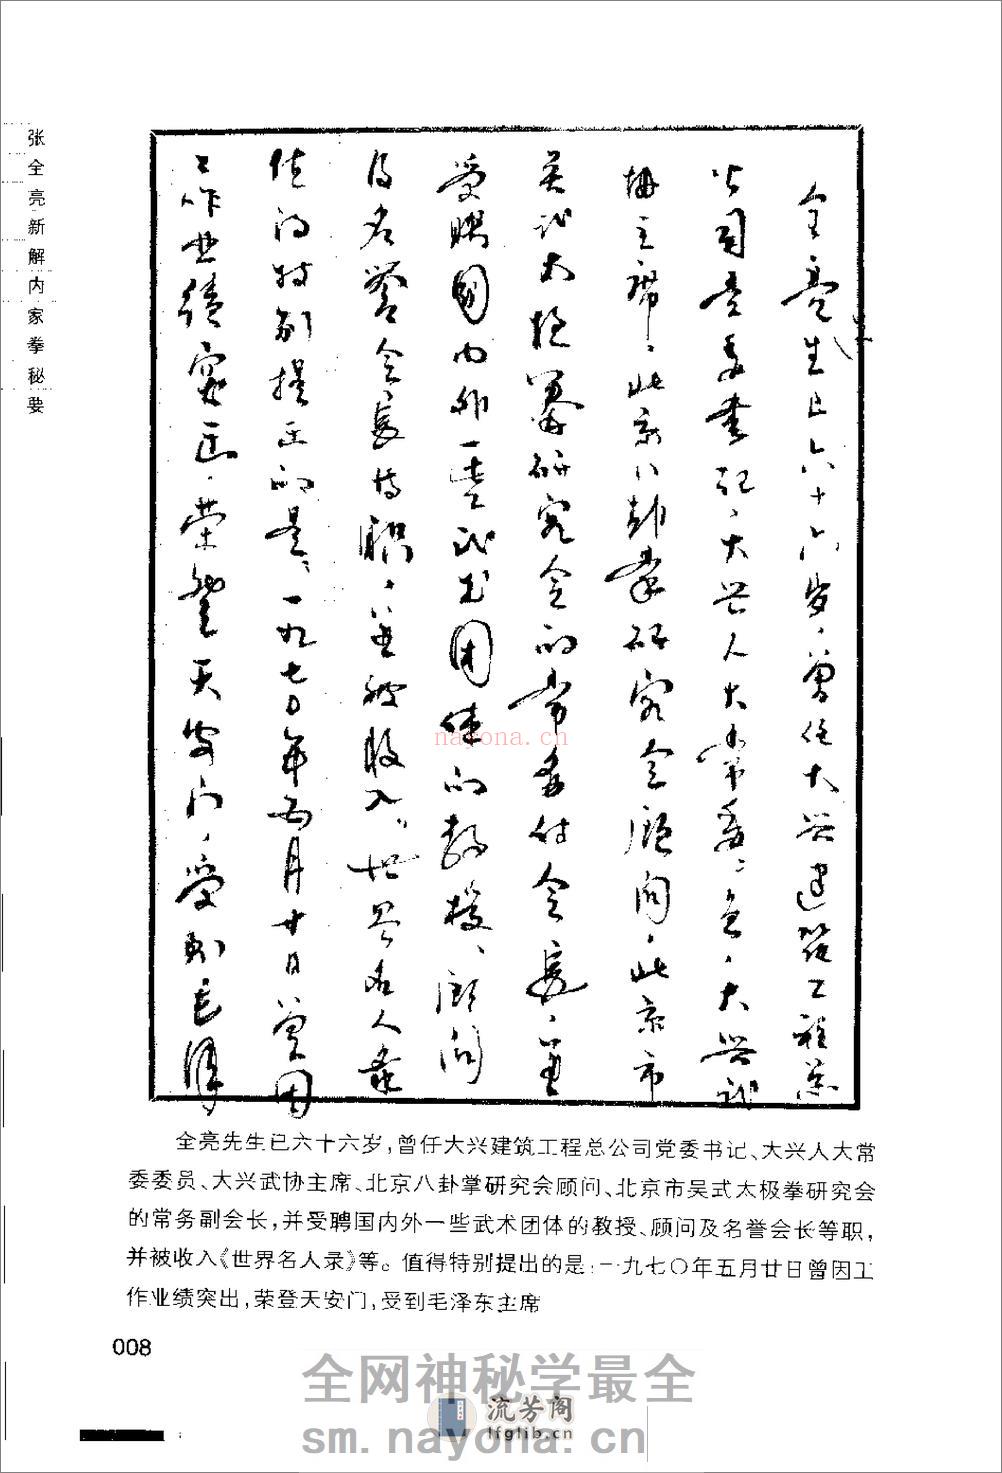 张全亮新解内家拳秘要
全亮生已六十六岁、曾任大兴建筑工程总
先
公司党委书记、大兴人大常委、委员、大兴武
协主席、北京八卦掌研究会顾问、北京市
吴式太极拳研究会的常务付会长、并
受聘国内外一些武术团体的教授、顾问
及名誉会长等职、并被收入《世界名人录》
值得特别提出的是、一九七〇年五月廿日曾因
工作业绩突出、荣登天安门、受到毛泽
全亮先生已六十六岁，曾任大兴建筑工程总公司党委书记、大兴人大常
委委员、大兴武协主席、北京八卦掌研究会顾问、北京市吴式太极拳研究会
的常务副会长，并受聘国内外一些武术团体的教授、顾问及名誉会长等职，
并被收入《世界名人录》等。值得特别提出的是：一九七〇年五月廿日曾因工
作业绩突出，荣登天安门，受到毛泽东主席
008
nayona.cn
全网神秘学最全
流芳阁
lfglib.cn
sm.nayona.cn